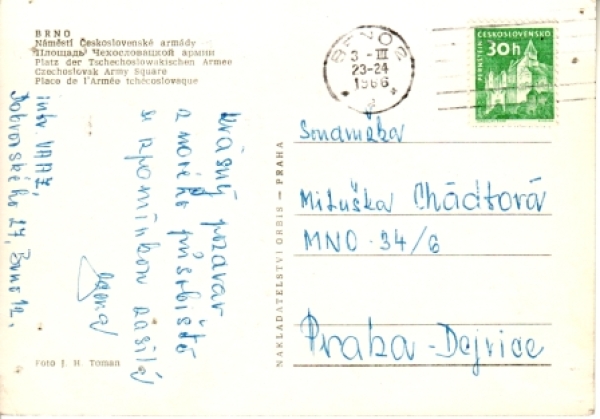 BRNO
Náměstí Československé armády
Площадь Чехословацкой армии
Platz der Tschechoslowakischen Armee
Czechoslovak Army Square
Place de l'Armée tchécosloveque
krásný pozdrav
z nového působiště
se vzpomínkou zasílá
intr. VAAZ,
Dobrovského 27, Brno 12.
Foto J. H. Toman
NAKLADATELSTVÍ ORBIS — PRAHA
BRNO 2
3 -III
23-24
1966
ČESKOSLOVENSKO
30h
PERNŠTEJN
Soudružka
Miluška Chádtová
MNO-34/6
Praha-Dejvice